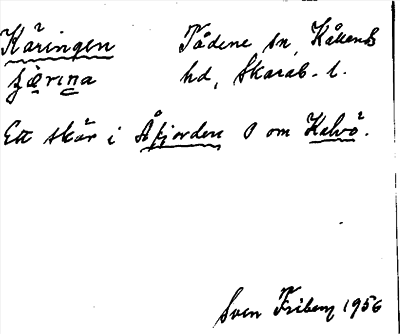 Käringen Tådene sn, Kållands
hd, Skarab. l.
Ett skär i Åfjorden O om Kalvö.
Sven Friberg 1956